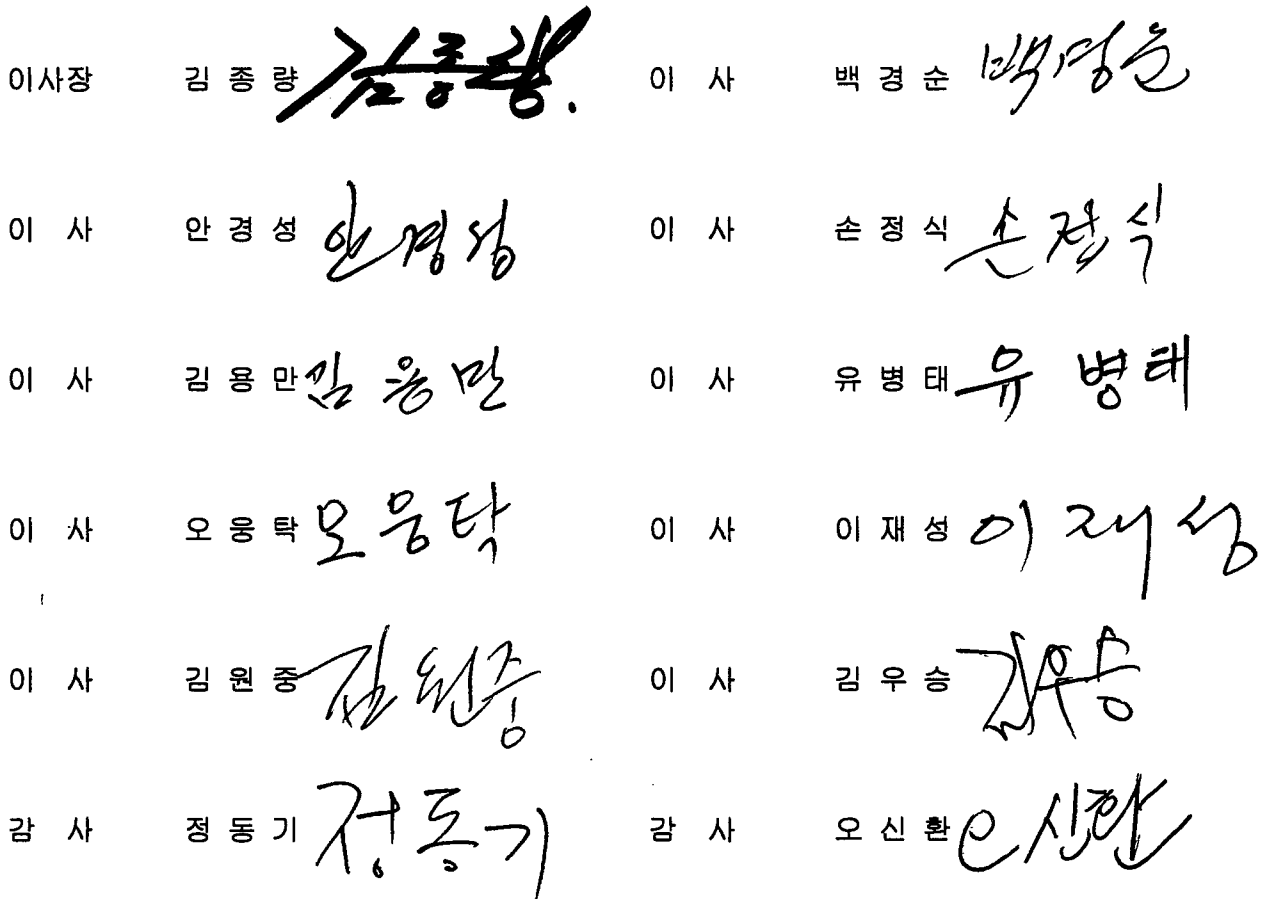 이사장 김종량 김종량 이 사 백경순 백경순
이 사 안경성 안경성 이 사 손정식 손정식
이 사 김용만 김용만 이 사 유병태 유병태
이 사 오웅탁 오웅탁 이 사 이재성 이재성
이 사 김원중 김원중 이 사 김우승 김우승
감 사 정동기 정동기 감 사 오신환 오신환